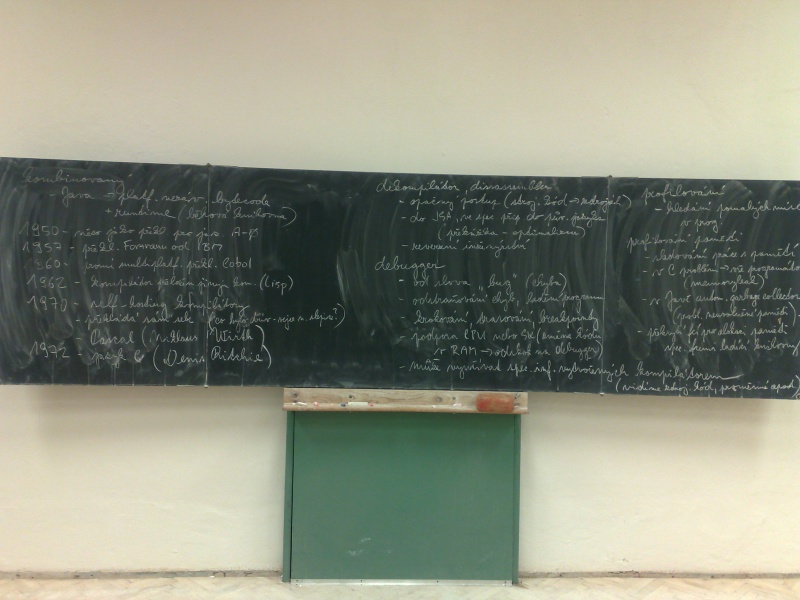 kombinovaný
- Java → platf. nezáv. bytecode
+ runtime (běhová knihovna)
1950 - něco jako překl. pro jaz. A-0
1957 - překl. Fortranu od IBM
1960 - první multiplatf. překl. Cobol
1962 - kompilátor přeloží jiný kom. (Lisp)
1970 - self-hosting kompilátory
- překládá sám sebe (co bylo dřív - vejce n. slepice?)
Pascal (Niklaus Wirth)
1972 - jazyk C (Denis Ritchie)
dekompilátor, dissasembler
- opačný postup (stroj. kód → zdroják)
- do JSA, ne spec. přep. do pův. jazyka
(překážka - optimalizace)
- reverzní inženýrství
debugger
- od slova "bug" (chyba)
- odstraňování chyb, ladění programu
- krokování, trasování, breakpointy
- podpora CPU nebo SW (změna kódu
v RAM → odskok na debugger)
- může využívat spec. inf. vytvořených kompilátorem
(vidíme zdroj. kód, proměnné apod.)
profilování
- hledání pomalých míst
v prog.
profilování paměti
- sledování práce s pamětí
- v C problém → vše programátor
(memory leak)
- v Javě autom. garbage collector
(probl. neuvolnění paměti)